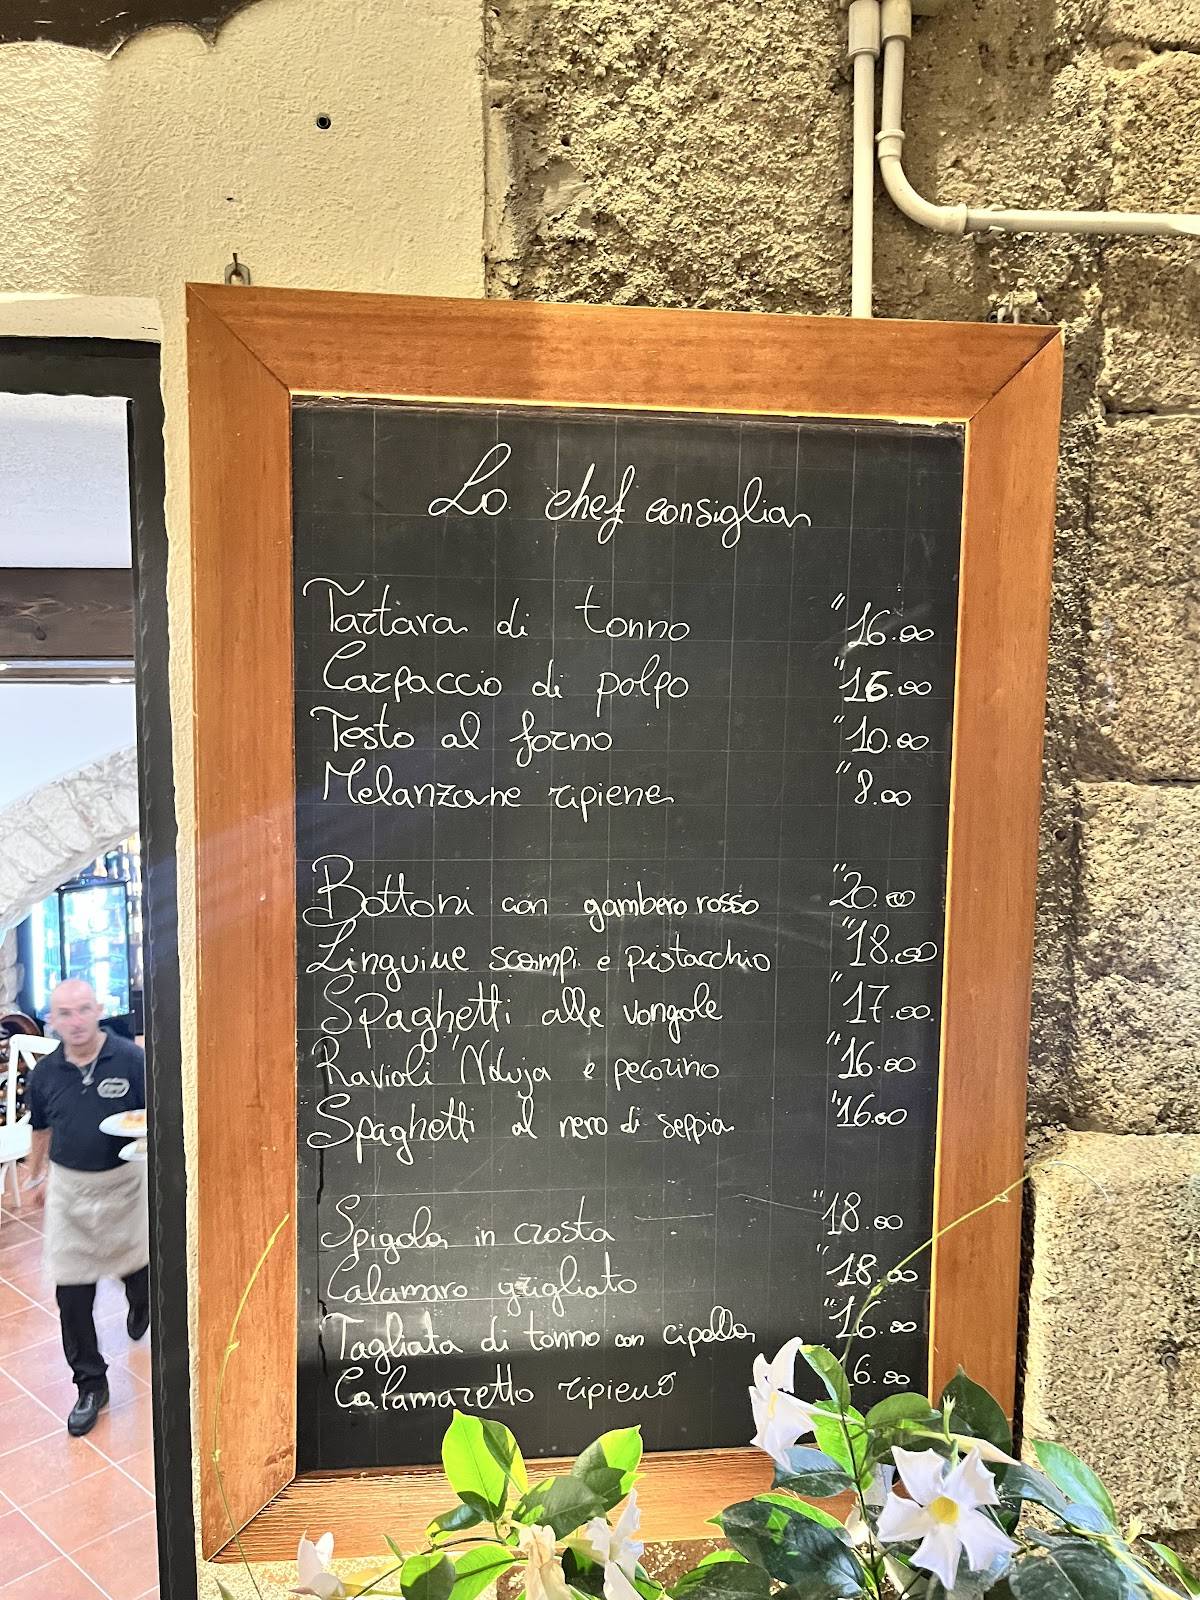 Lo chef consiglia
Tartara di tonno "16.00
Carpaccio di polpo "16.00
Testo al forno "10.00
Melanzane ripiene "8.00
Bottoni con gambero rosso "20.00
Linguine scampi e pistacchio "18.00
Spaghetti alle vongole "17.00
Ravioli 'Nduja e pecorino "16.00
Spaghetti al nero di seppia "16.00
Spigola in crosta "18.00
Calamaro grigliato "18.00
Tagliata di tonno con cipolla "16.00
Calamaretto ripieno 6.00